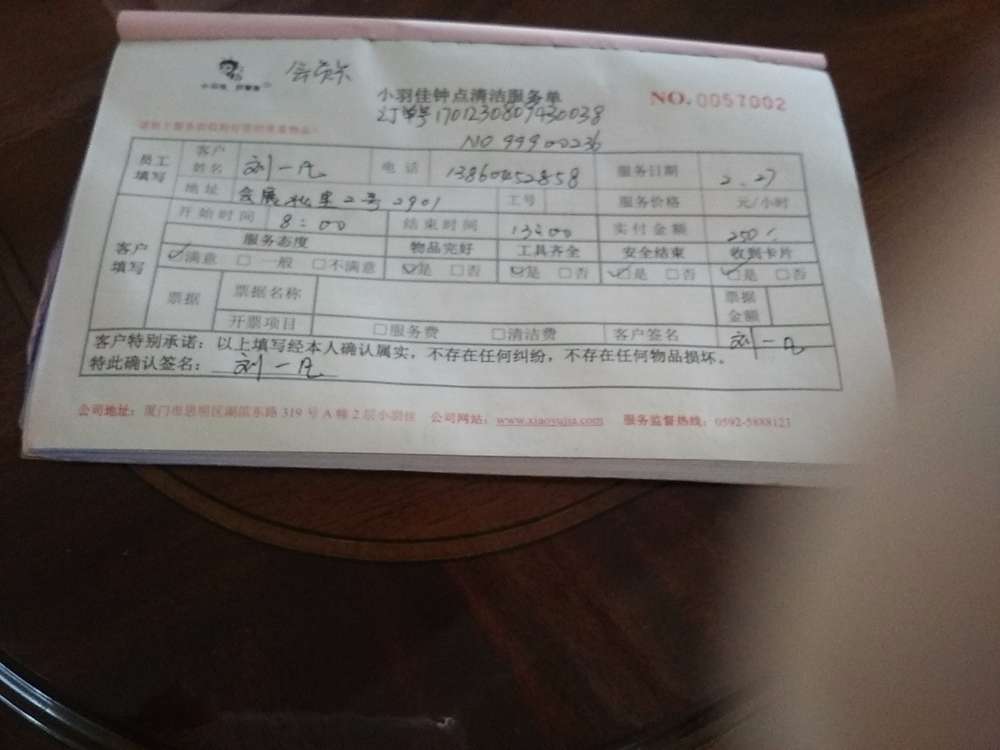 会员卡
小羽佳钟点清洁服务单 NO. 0057002
订单号1701230809430038
NO 99900236
员工填写 客户姓名 刘一凡 电话 13860452858 服务日期 2.27
地址 2号2901 工号 服务价格 元/小时
客户填写 开始时间 8:00 结束时间 13:00 实付金额 250
服务态度 物品完好 工具齐全 安全结束 收到卡片
☑满意 □一般 □不满意 ☑是 □否 ☑是 □否 ☑是 □否 ☑是 □否
票据 票据名称 票据金额
开票项目 □服务费 □清洁费 客户签名 刘一凡
客户特别承诺：以上填写经本人确认属实，不存在任何纠纷，不存在任何物品损坏。
特此确认签名：刘一凡
公司地址：厦门市思明区湖滨东路 319 号 A 幢 2 层小羽佳 公司网站：www.xiaoyujia.com 服务监督热线：0592-5888123